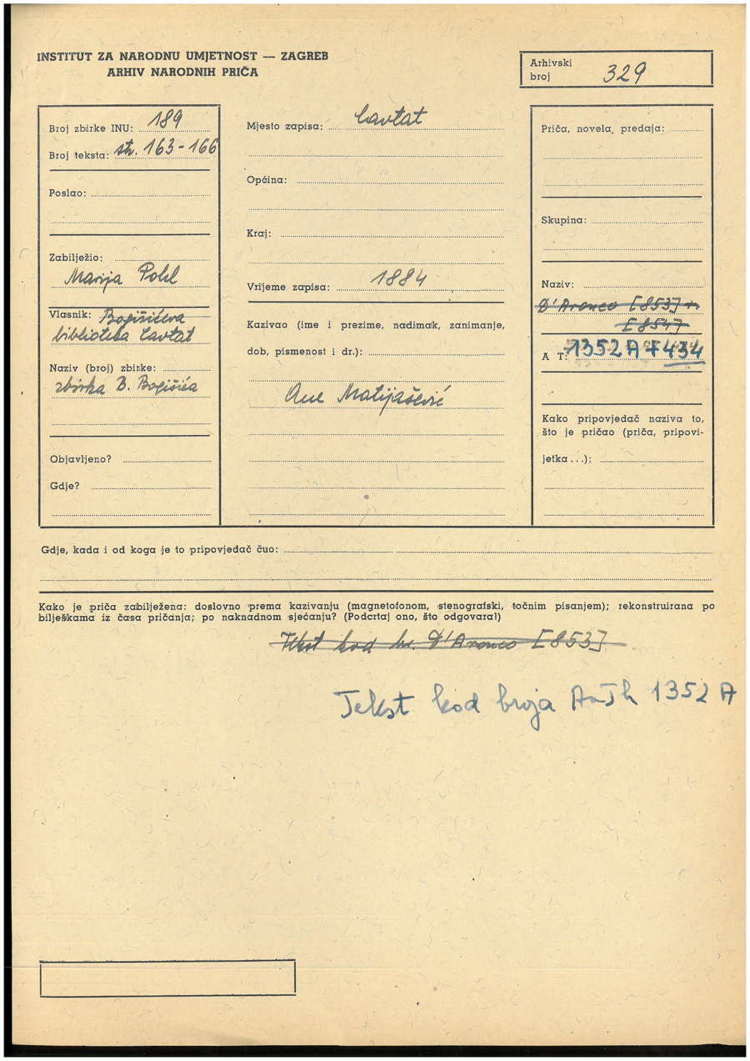 INSTITUT ZA NARODNU UMJETNOST — ZAGREB
ARHIV NARODNIH PRIČA
Arhivski
broj 329
Broj zbirke INU: 189
Broj teksta: str. 163-166
Poslao:
Zabilježio:
Marija Pohl
Vlasnik: Bogišićeva
biblioteka Cavtat
Naziv (broj) zbirke:
zbirka B. Bogišića
Objavljeno?
Gdje?
Mjesto zapisa: Cavtat
Općina:
Kraj:
Vrijeme zapisa: 1884
Kazivao (ime i prezime, nadimak, zanimanje,
dob, pismenost i dr.):
Ane Matijašević
Priča, novela, predaja:
Skupina:
Naziv:
D'Aronco [853] +
[854]
A T: 1352 A + 434
Kako pripovjedač naziva to,
što je pričao (priča, pripovi-
jetka...):
Gdje, kada i od koga je to pripovjedač čuo:
Kako je priča zabilježena: doslovno prema kazivanju (magnetofonom, stenografski, točnim pisanjem); rekonstruirana po
bilješkama iz časa pričanja; po naknadnom sjećanju? (Podcrtaj ono, što odgovara!)
Tekst kod br. D'Aronco [853]
Tekst kod broja AaTh 1352 A